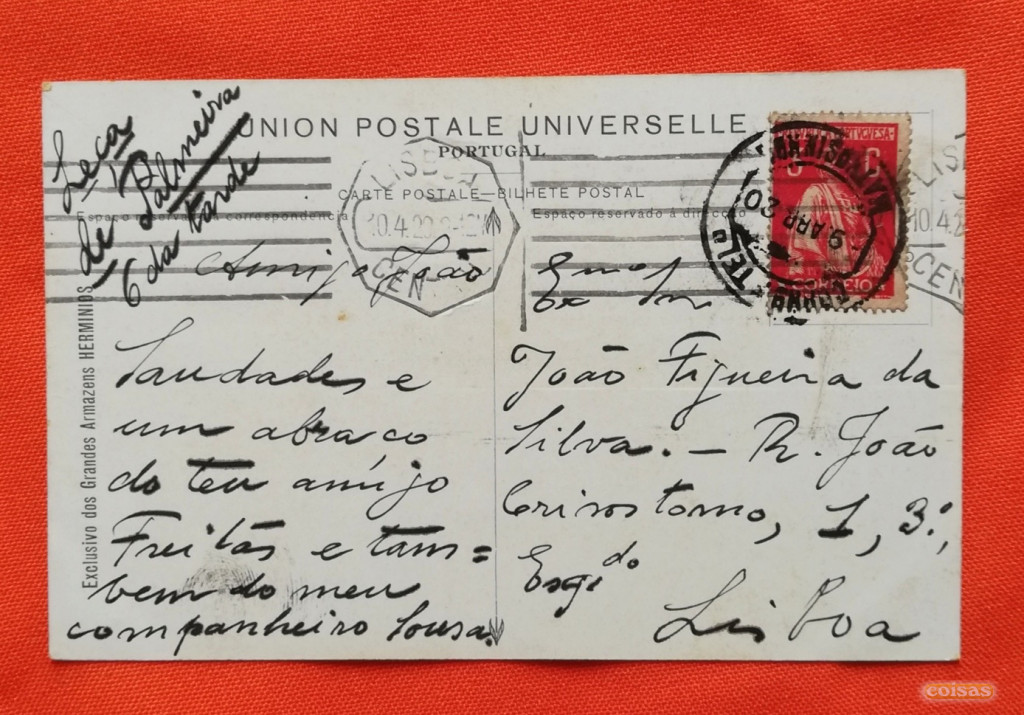 UNION POSTALE UNIVERSELLE
PORTUGAL
CARTE POSTALE—BILHETE POSTAL
Espaço reservado à correspondencia
Espaço reservado á direcção
Leça
de Palmeira
6 da tarde
LISBOA
10.4.20
CEN
LIS
10.4.2
CEN
9 ABR 20
CORREIO
Exclusivo dos Grandes Armazens HERMINIOS
Amigo João
Saudades e
um abraço
do teu amigo
Freitas e tam=
bem do meu
companheiro Sousa.
Exmo Snr
João Figueira da
Silva. — R. João
Crisostomo, 1, 3º,
Esqdo
Lisboa
coisas